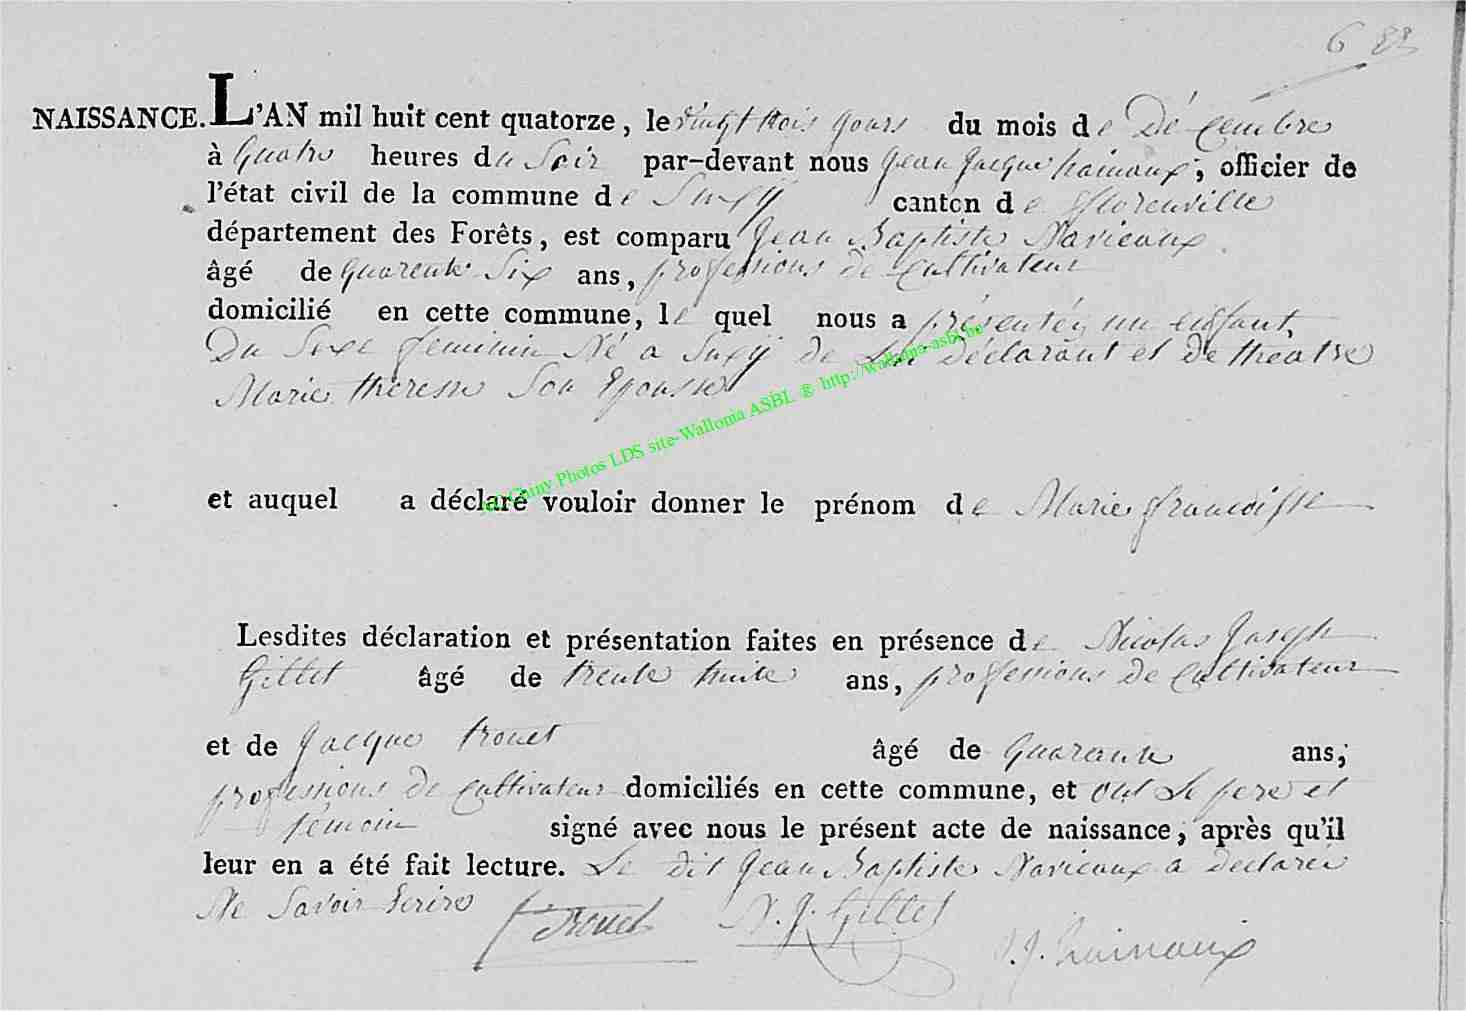 6
NAISSANCE. L'AN mil huit cent quatorze, le vingt trois jours du mois de Décembre
à quatre heures du Soir par-devant nous Jean Jacque hainaux; officier de
l'état civil de la commune de Suxÿ canton de florenville
département des Forêts, est comparu Jean Baptiste Navieaux
âgé de quarente Six ans, professions de Cultivateur
domicilié en cette commune, le quel nous a présentéz un enfant
Du Sexe feminin Né a Suxÿ de Lui Déclarant et de theatre
Marie therese Son Epousse
AC Chiny Photos LDS site-Wallonia ASBL @ http://wallonia-asbl.be
et auquel a déclaré vouloir donner le prénom de Marie francoisse
Lesdites déclaration et présentation faites en présence de Nicolas Joseph
Gillet âgé de trente huite ans, professions de Cultivateur
et de Jacque trouet âgé de Quarente ans;
professions de Cultivateur domiciliés en cette commune, et ont Le pere et
témoin signé avec nous le présent acte de naissance, après qu'il
leur en a été fait lecture. Le dit Jean Baptiste Navieaux a Declarer
Ne Savoir Ecrire
Trouet N. J. Gillet
J. J. hainaux